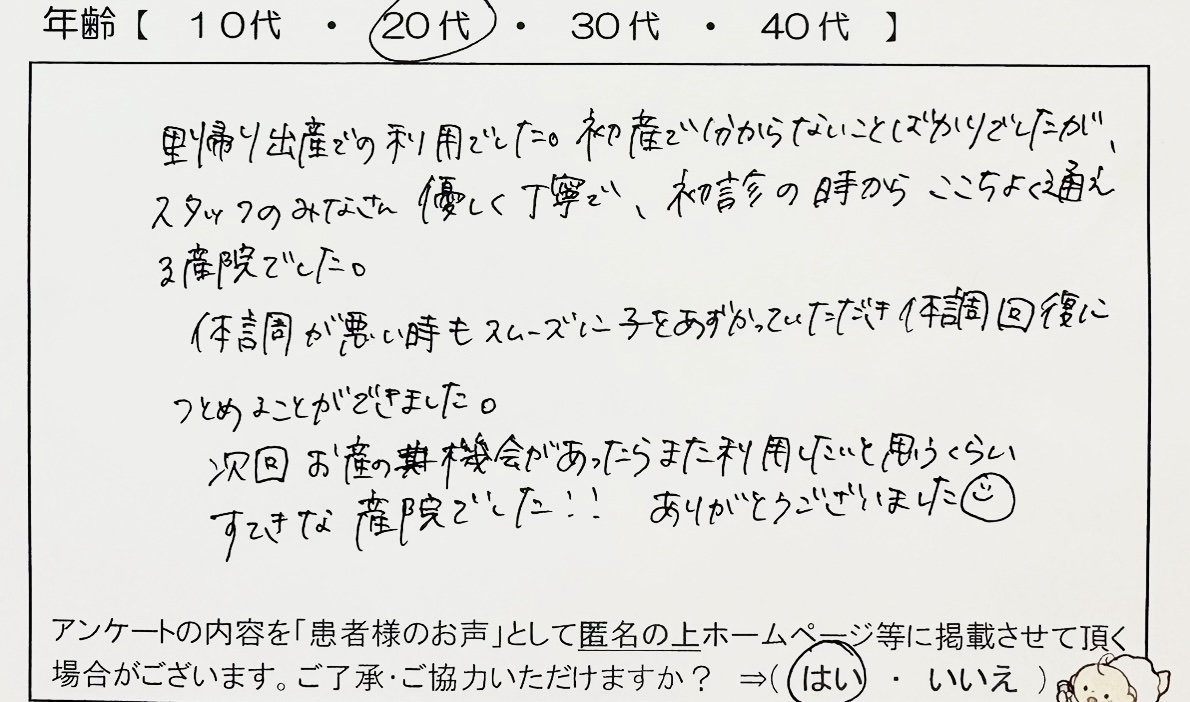 年齢【 10代 ・ 20代 ・ 30代 ・ 40代 】
里帰り出産での利用でした。初産で分からないことばかりでしたが、
スタッフのみなさん優しく丁寧で、初診の時からここちよく通え
る産院でした。
体調が悪い時もスムーズに子をあずかっていただき体調回復に
つとめることができました。
次回お産の機会があったらまた利用したいと思うくらい
すてきな産院でした!! ありがとうございました☺
アンケートの内容を「患者様のお声」として匿名の上ホームページ等に掲載させて頂く
場合がございます。ご了承・ご協力いただけますか? ⇒( はい ・ いいえ )